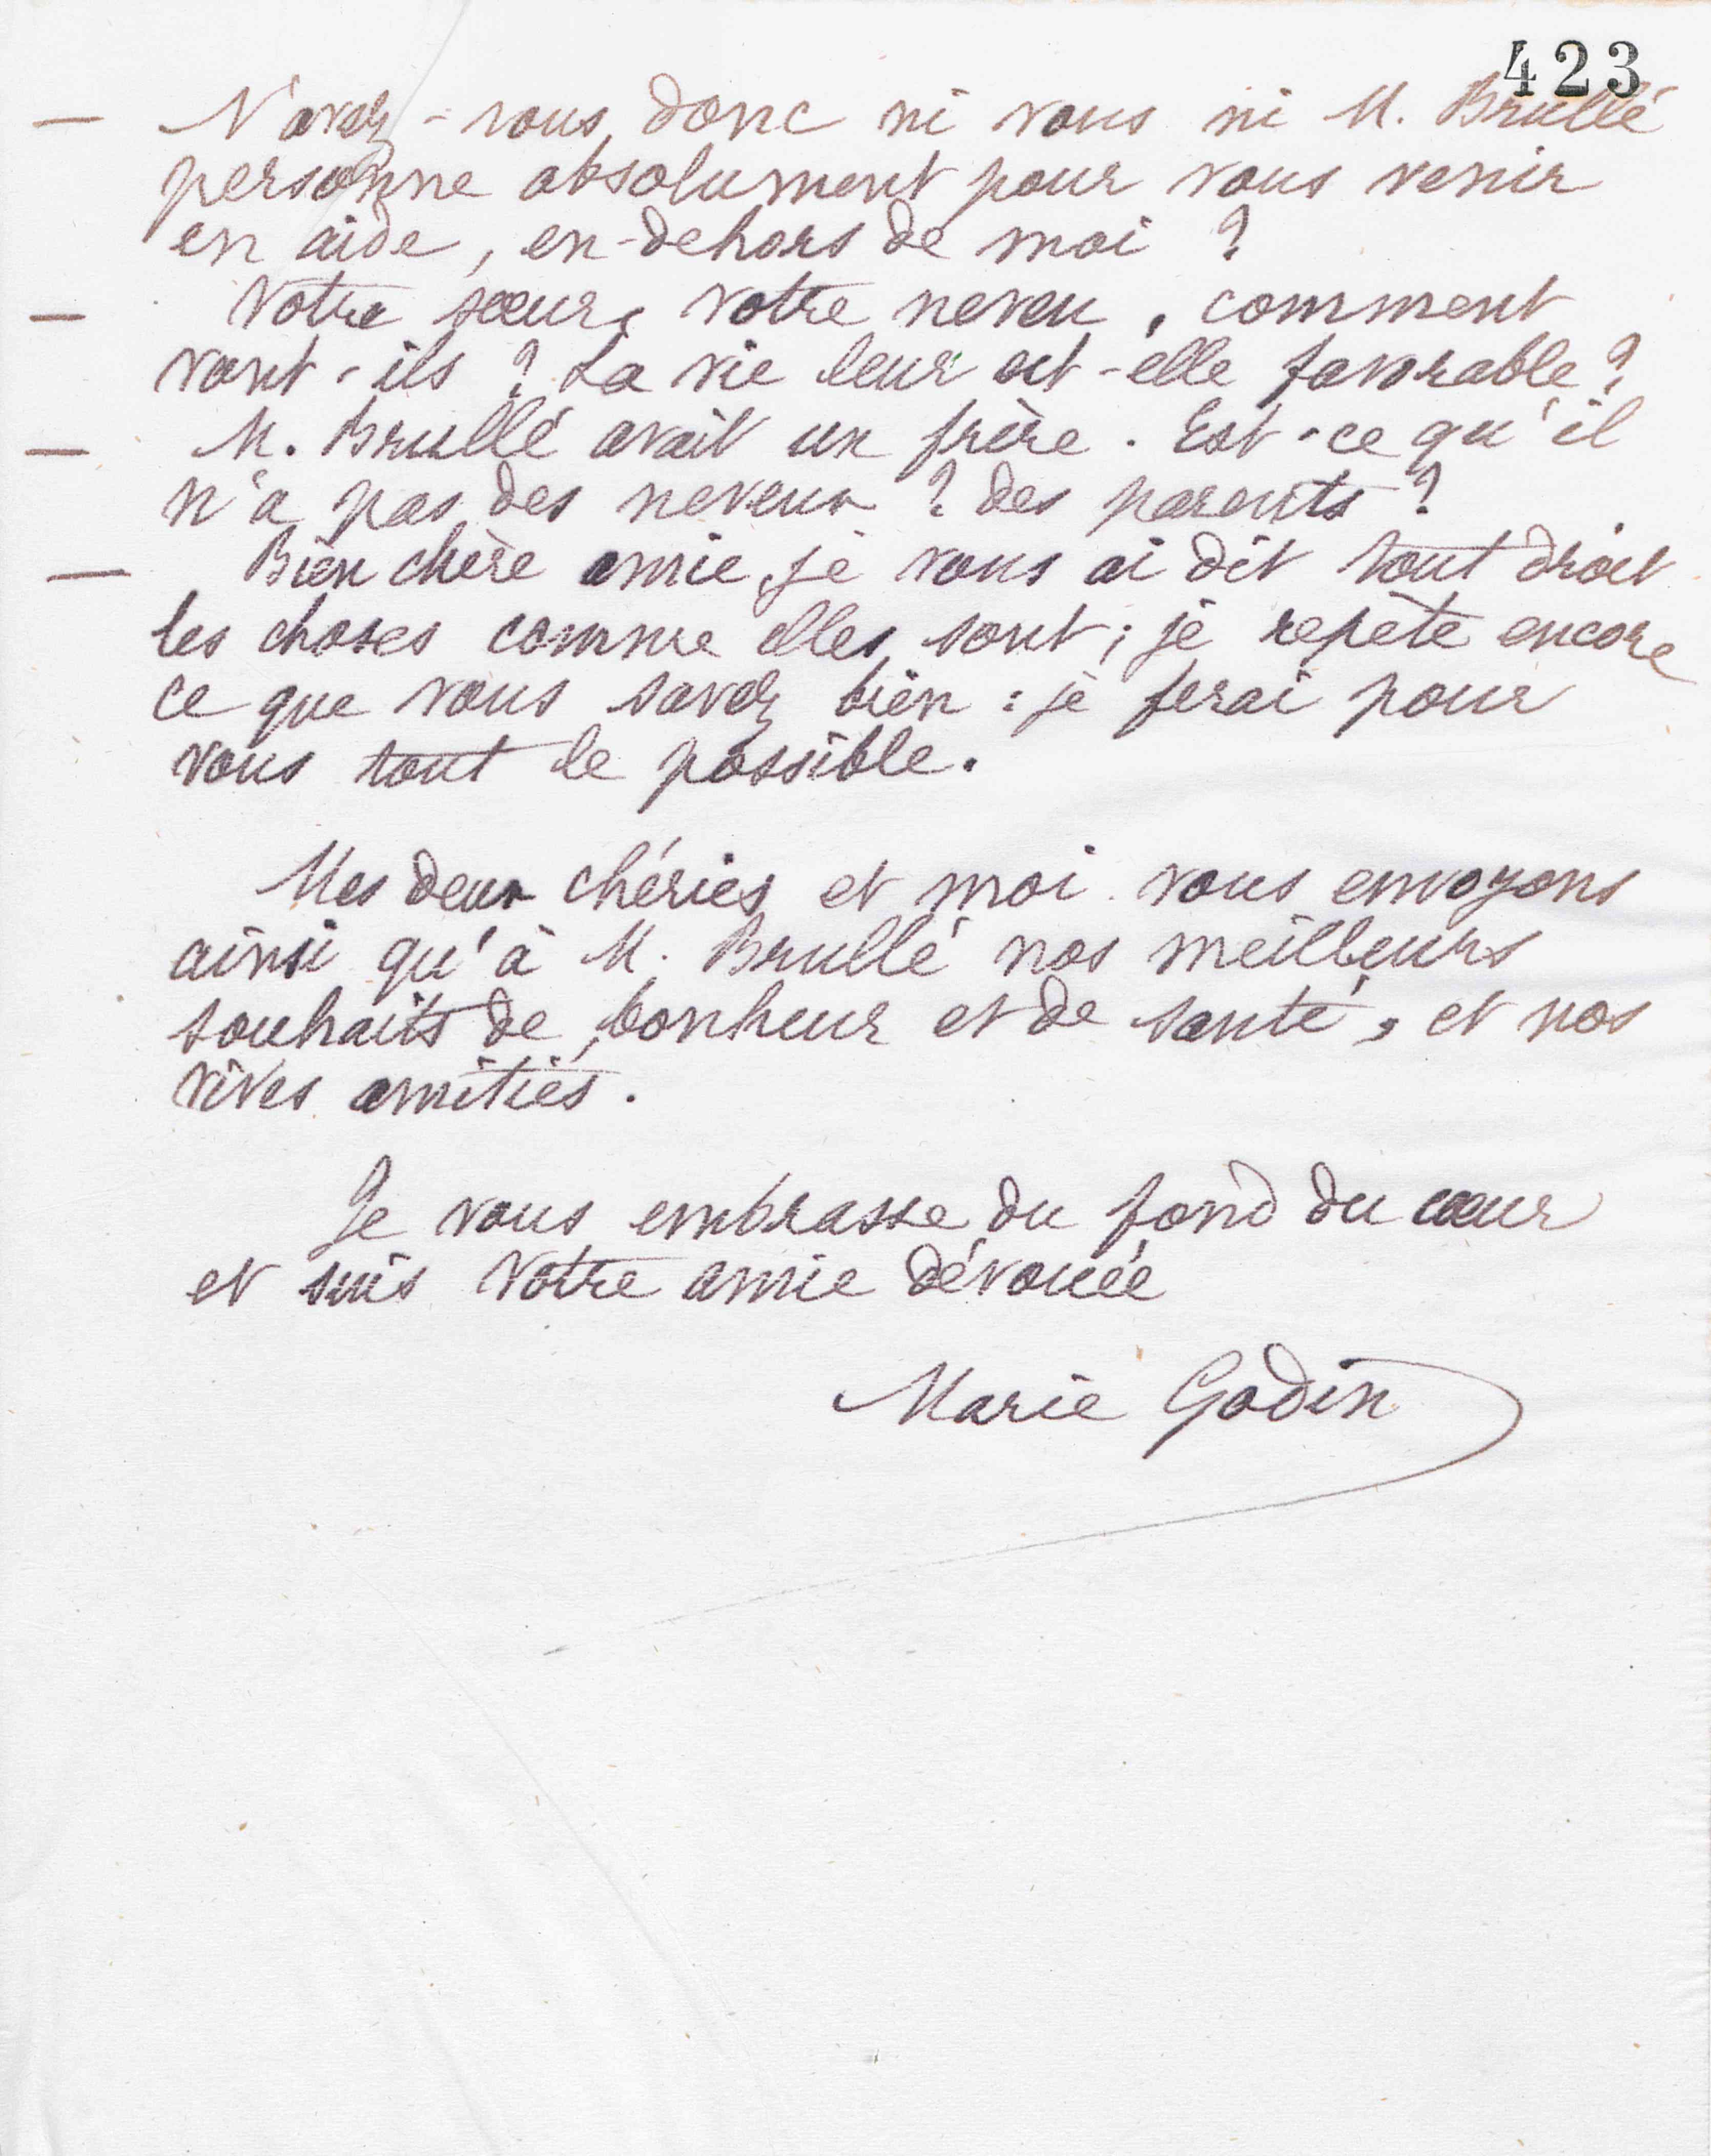 423
— N'avez-vous donc ni vous ni M. Brullé
personne absolument pour vous venir
en aide, en-dehors de moi ?
— Votre sœur, votre neveu, comment
vont-ils ? La vie leur est-elle favorable ?
— M. Brullé avait un frère. Est-ce qu'il
n'a pas des neveux ? des parents ?
— Bien chère amie, je vous ai dit tout droit
les choses comme elles sont ; je repète encore
ce que vous savez bien : je ferai pour
vous tout le possible.
Mes deux chéries et moi vous envoyons
ainsi qu'à M. Brullé nos meilleurs
souhaits de bonheur et de santé, et nos
vives amitiés.
Je vous embrasse du fond du cœur
et suis votre amie dévouée
Marie Godin